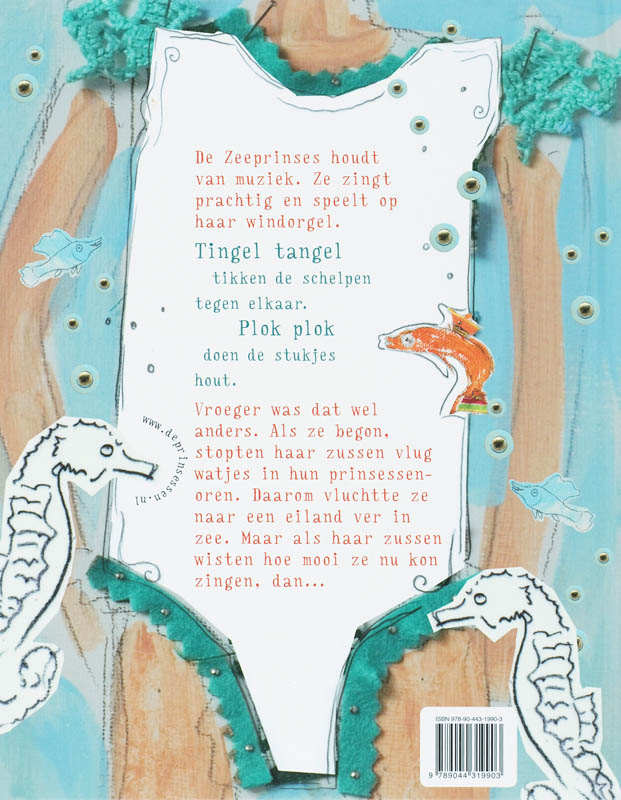 De Zeeprinses houdt
van muziek. Ze zingt
prachtig en speelt op
haar windorgel.
Tingel tangel
tikken de schelpen
tegen elkaar.
Plok plok
doen de stukjes
hout.
Vroeger was dat wel
anders. Als ze begon,
stopten haar zussen vlug
watjes in hun prinsessen-
oren. Daarom vluchtte ze
naar een eiland ver in
zee. Maar als haar zussen
wisten hoe mooi ze nu kon
zingen, dan...
www.deprinsessen.nl
ISBN 978-90-443-1990-3
9 789044 319903